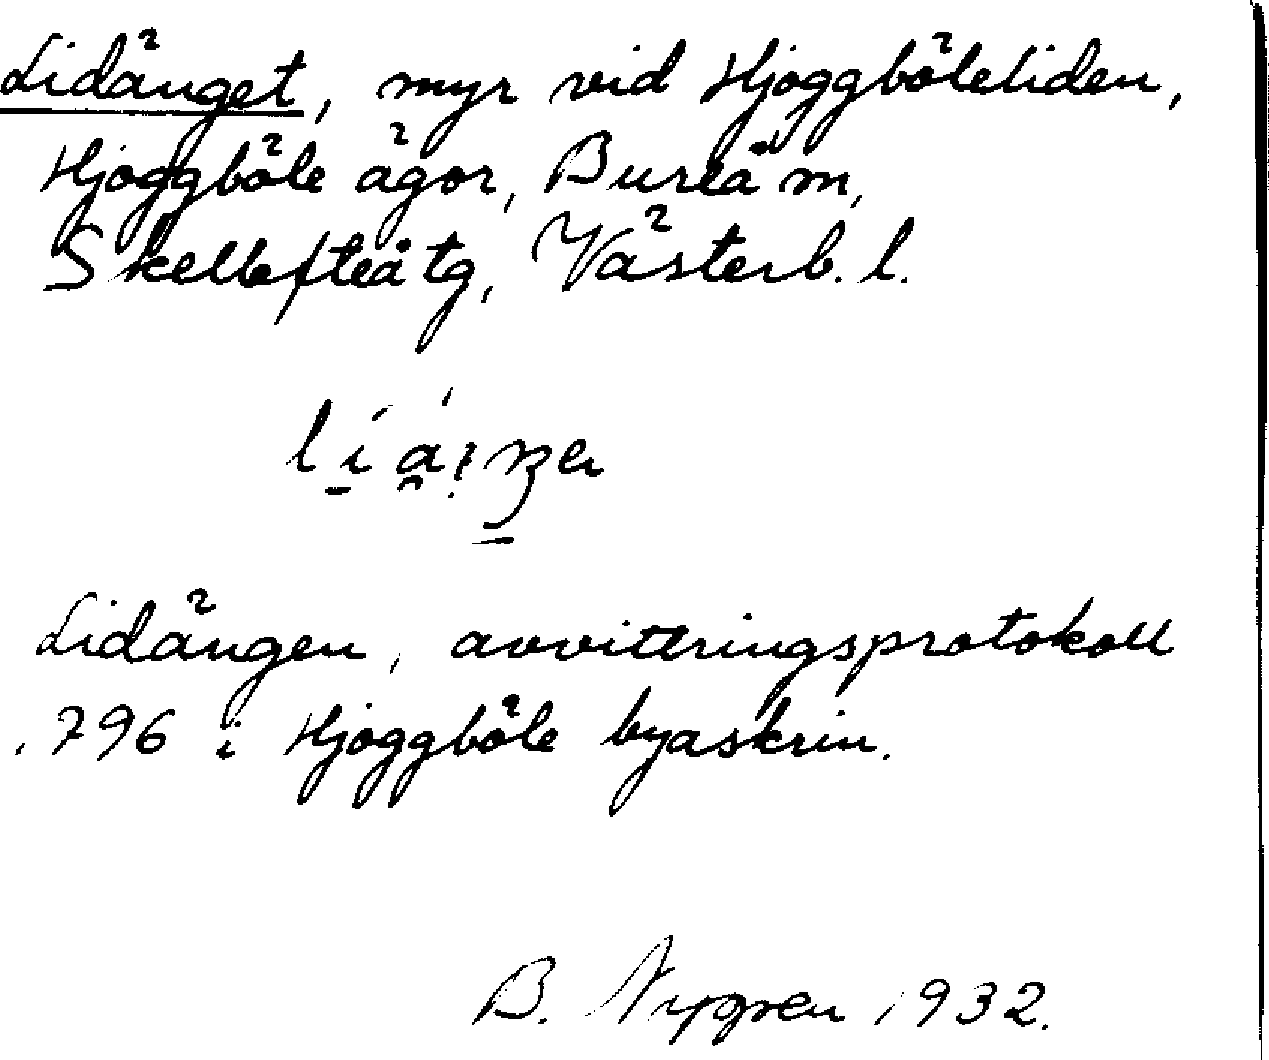 Lidänget, myr vid Hjoggböleliden,
Hjoggböle ägor, Bureå m,
Skellefteå tg, Västerb. l.
Lidängen, avvittringsprotokoll
.796 i Hjoggböle byaskrin.
B. Nygren 1932.